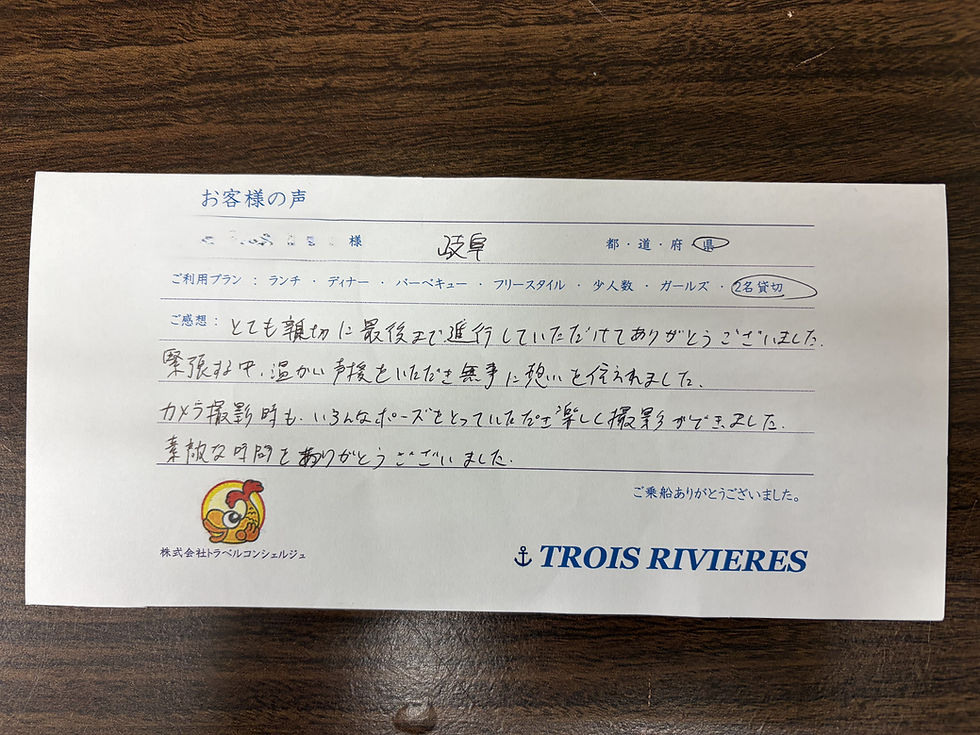 お客様の声
様 岐阜 都・道・府・県
ご利用プラン : ランチ ・ ディナー ・ バーベキュー ・ フリースタイル ・ 少人数 ・ ガールズ ・ 2名貸切
ご感想: とても親切に最後まで進行していただけてありがとうございました.
緊張する中、温かい声援をいただき無事に想いを伝えれました.
カメラ撮影時も、いろんなポーズをとっていただき楽しく撮影ができました.
素敵な時間をありがとうございました.
ご乗船ありがとうございました。
株式会社トラベルコンシェルジュ
TROIS RIVIERES